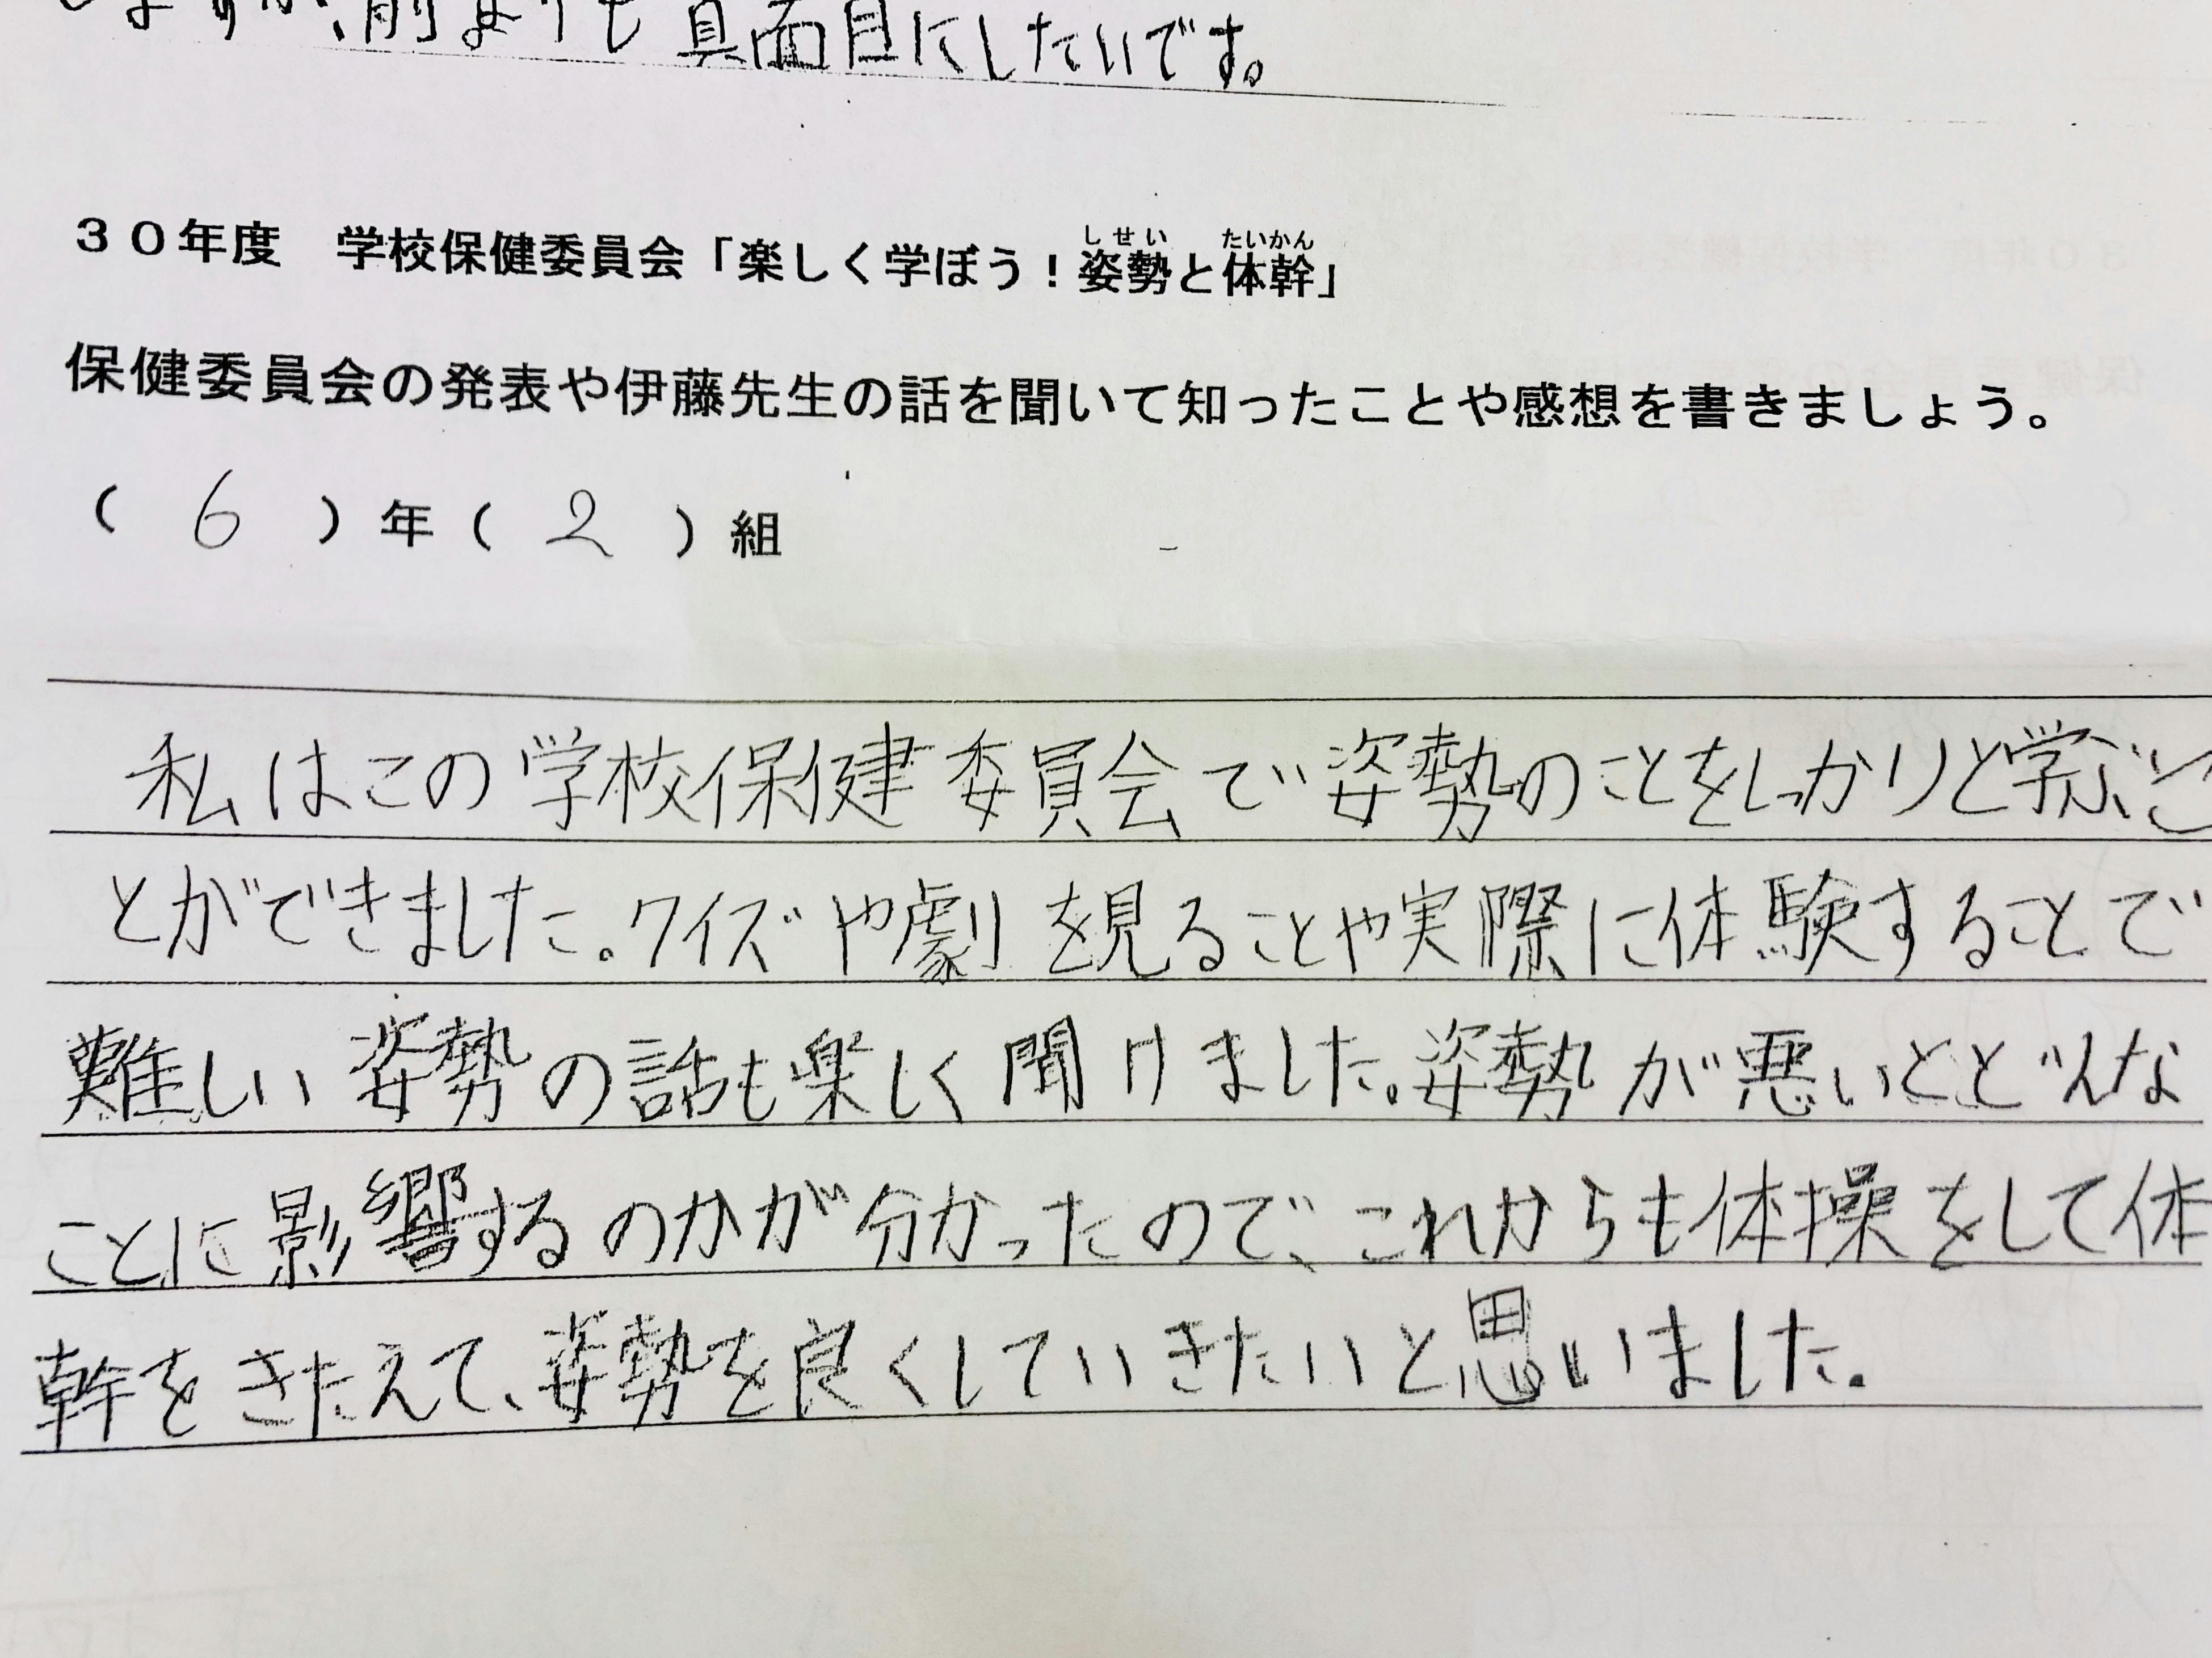 前よりも真面目にしたいです。
30年度　学校保健委員会「楽しく学ぼう！姿勢と体幹」
しせい　たいかん
保健委員会の発表や伊藤先生の話を聞いて知ったことや感想を書きましょう。
（ 6 ）年（ 2 ）組
私はこの学校保健委員会で姿勢のことをしっかりと学ぶこ
とができました。クイズや劇を見ることや実際に体験することで
難しい姿勢の話も楽しく聞けました。姿勢が悪いとどんな
ことに影響するのかが分かったので、これからも体操をして体
幹をきたえて、姿勢を良くしていきたいと思いました。